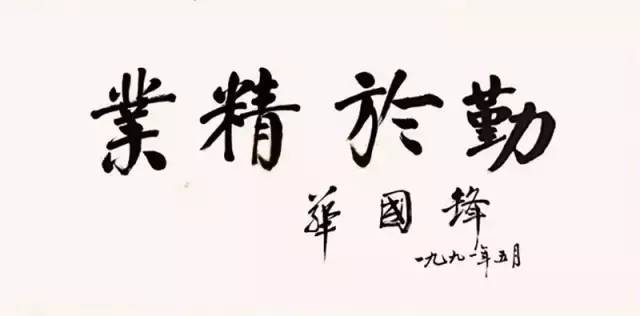 業精於勤
華國鋒
一九九一年五月